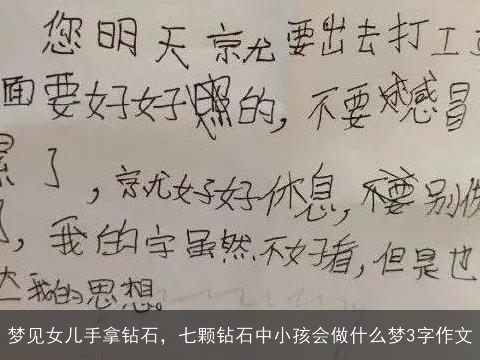 您明天京尤要出去打工
面要好好照的，不要感冒
累了，京尤好好休息，不要别
，我的字虽然不好看，但是也
我的思想。
梦见女儿手拿钻石，七颗钻石中小孩会做什么梦3字作文